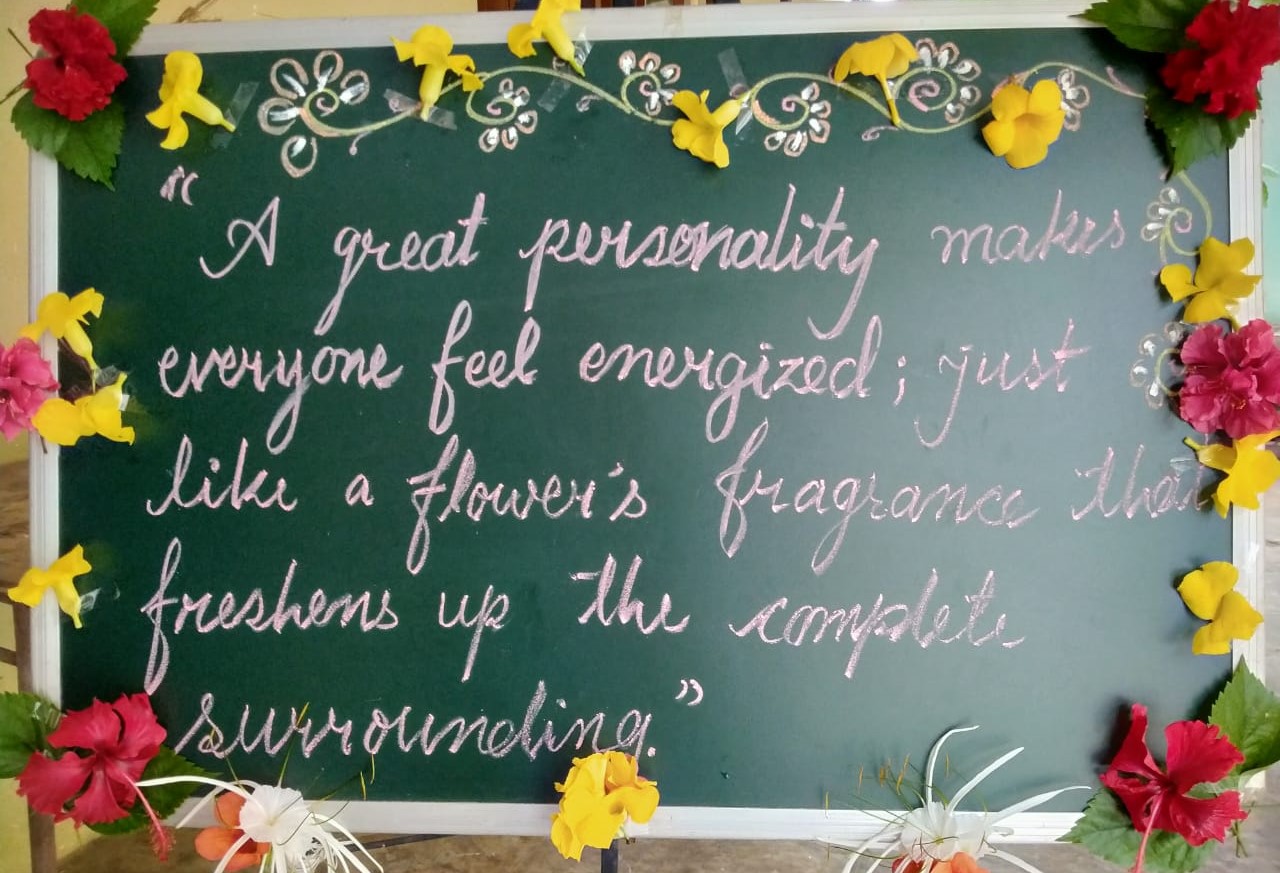 “ A great personality makes
everyone feel energized; just
like a flower's fragrance that
freshens up the complete
surrounding.”